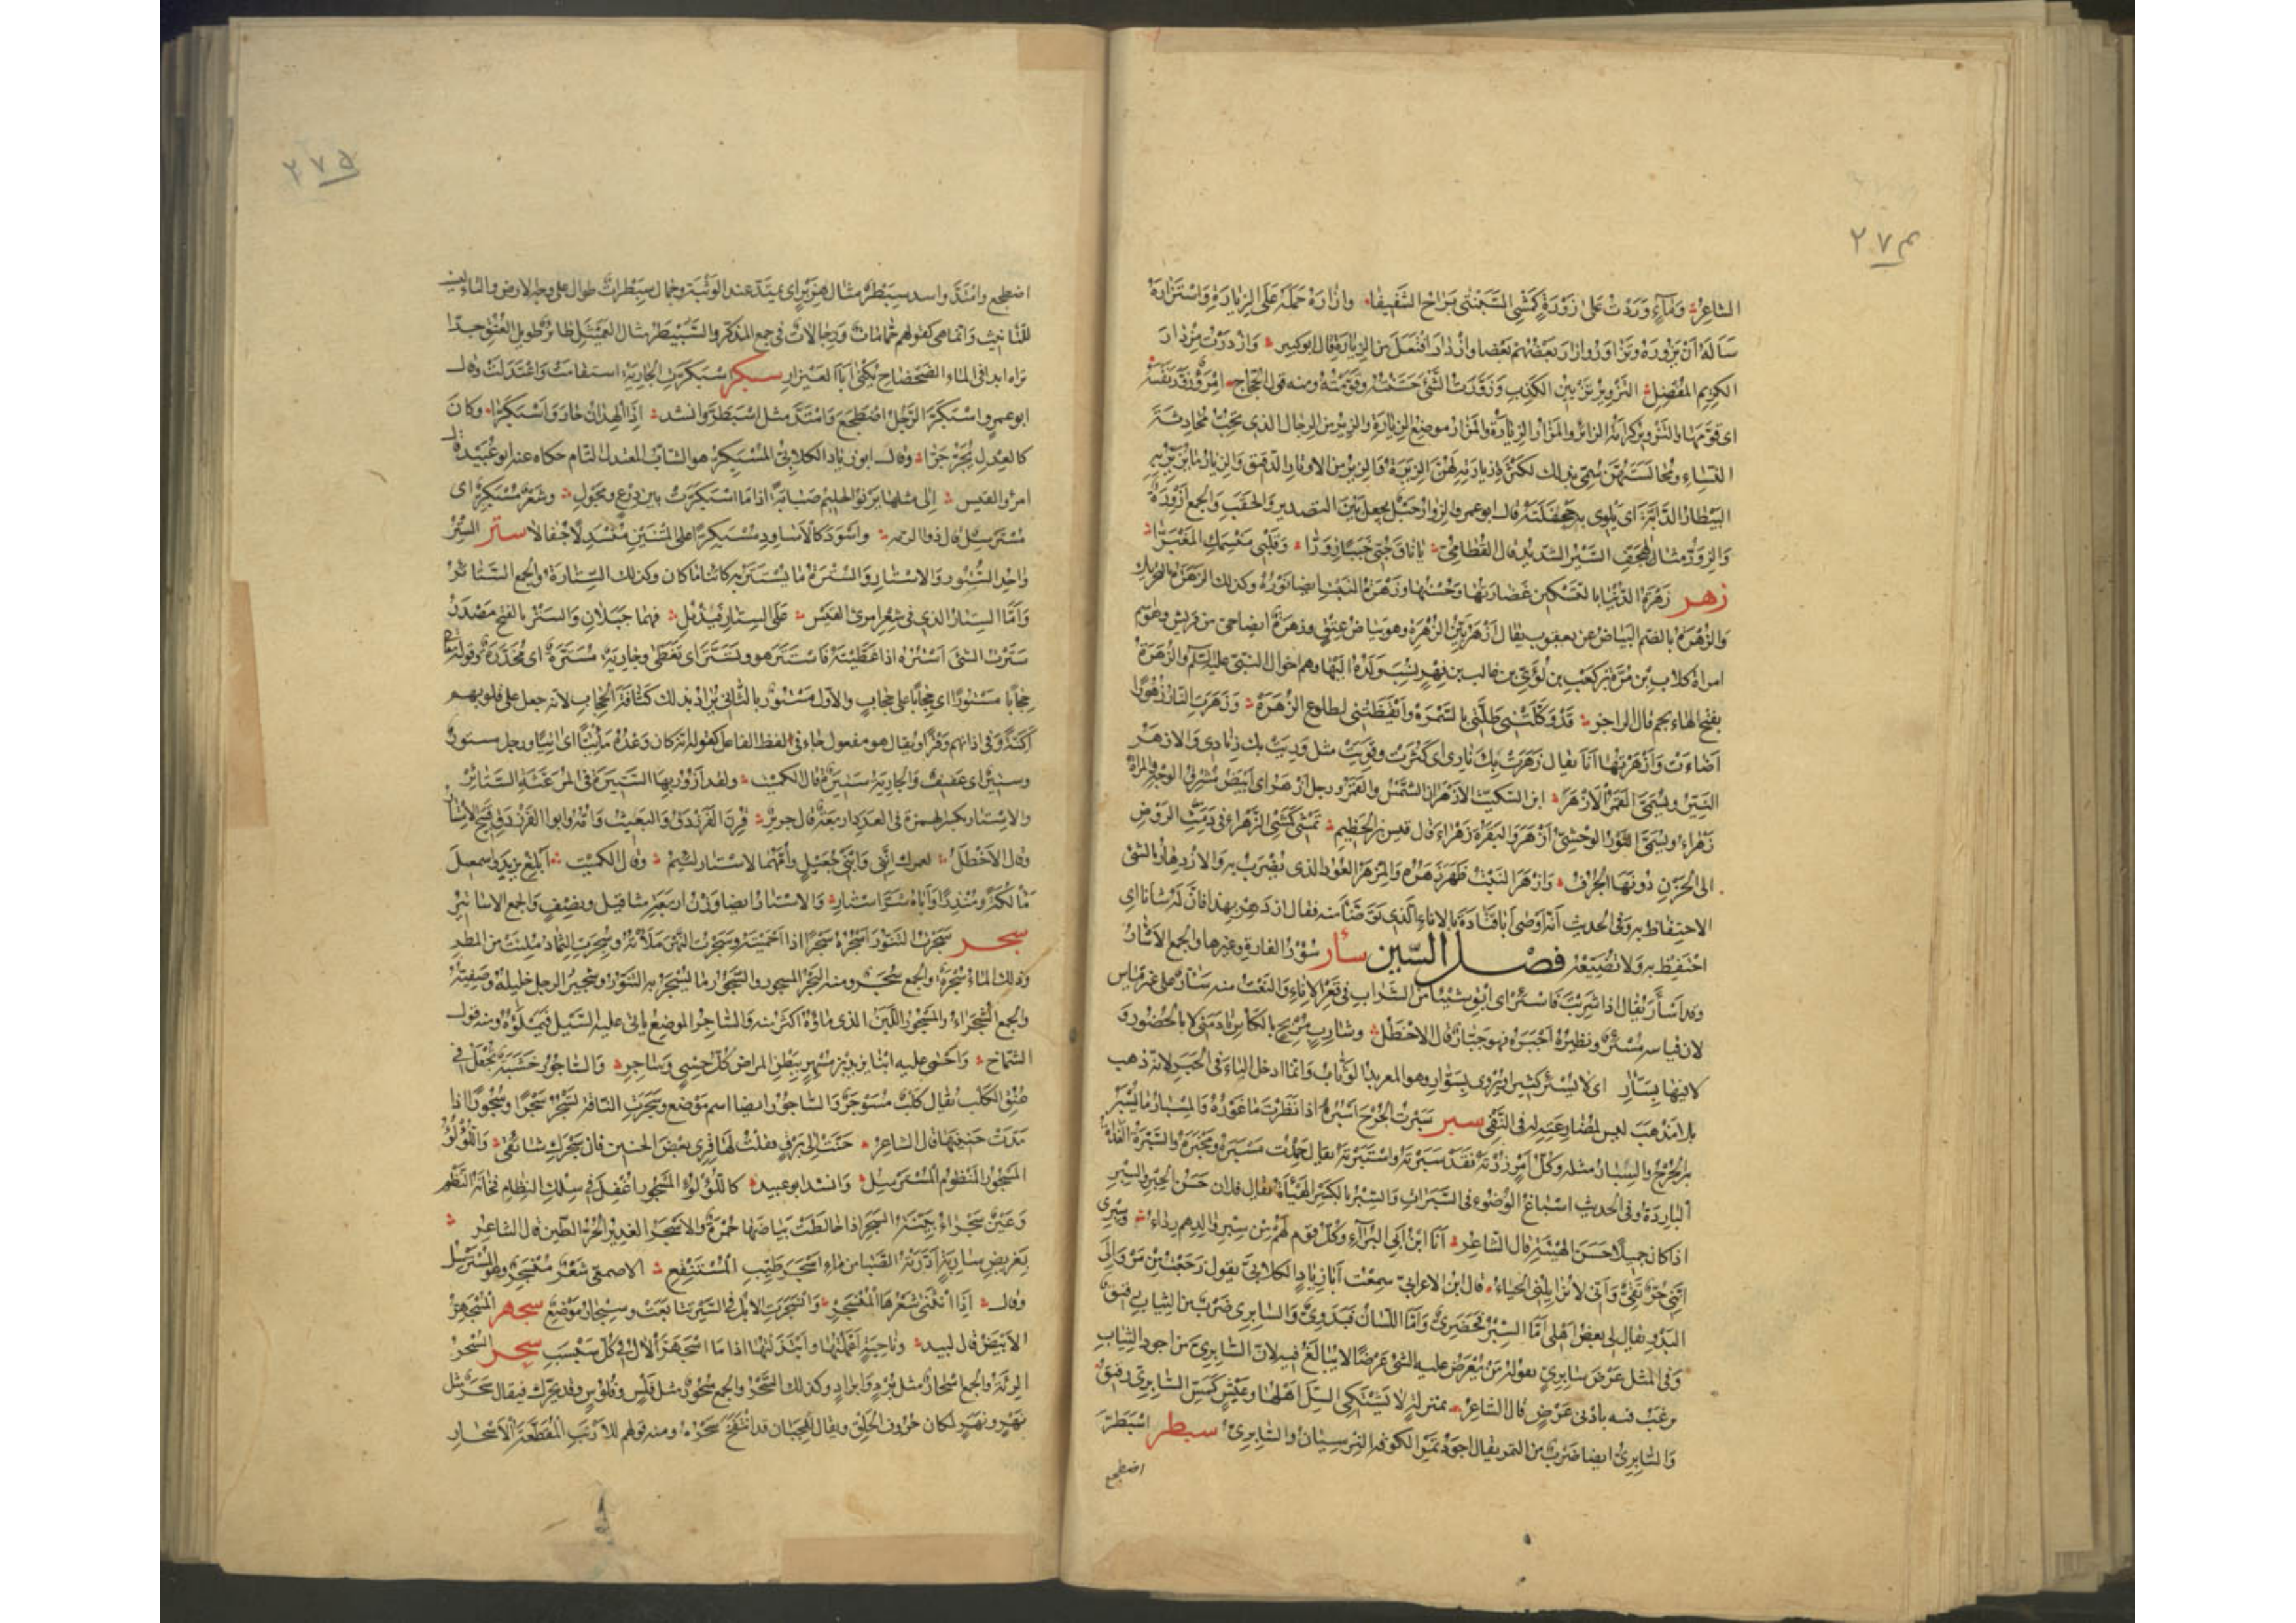 ٢٧٤
الشاعر وماء وردت على زورة كمشى السبنتى يراح الشفيفا وازاره حمله على الزيارة واستزاره
سأله ان يزوره وتزاوروا زار بعضهم بعضا وازدار افتعل من الزيارة قال ابو كبير وازدرت مزدار
الكريم المفضل التزوير تزيين الكذب وزورت الشئ حسنته وقومته ومنه قول الحجاج امرؤ زور نفسه
اى قومها والتزوير كرامة الزائر والمزار الزيارة والمزار موضع الزيارة والزير من الرجال الذى يحب محادثة
النساء ومجالستهن سمى بذلك لكثرة زيارته لهن والجمع الزيرة والزير من الاوتار الدقيق والزيار ما يزير به
البيطار الدابة اى يلوى به جحفلته قال ابو عمرو والزوار حبل يجعل بين التصدير والحقب والجمع ازورة
والزور مثال الهجف السير الشديد قال القطامى يا ناق خبى خببا زورا وقلبى منسمك المغبرا
زهر زهرة الدنيا بالتسكين غضارتها وحسنها وزهرة النبت ايضا نوره وكذلك الزهرة بالتحريك
والزهرة بالضم البياض عن يعقوب يقال ازهر بين الزهرة وهو بياض عتق وزهرة ايضا حى من قريش وهو اسم
امراة كلاب بن مرة بن كعب بن لؤى بن غالب بن فهر نسب ولده اليها وهم اخوال النبى عليه السلم والزهرة
بفتح الهاء نجم قال الراجز قد وكلتنى طلتى بالسمسرة وايقظتنى لطلوع الزهرة وزهرت النار زهورا
اضاءت وازهرتها انا يقال زهرت بك نارى اى كثرت وقويت مثل وريت بك زنادى والازهر
النير ويسمى القمر الازهر ابن السكيت الازهران الشمس والقمر ورجل ازهر اى ابيض مشرق الوجه والمراة
زهراء ويسمى الثور الوحشى ازهر والبقرة زهراء قال قيس بن الخطيم تمشى كمشى الزهراء فى دمث الروض
الى الحزن دونها الجرف وازهر النبت ظهر زهره والمزهر العود الذى يضرب به والازدهار بالشئ
الاحتفاظ به وفى الحديث انه اوصى ابا قتادة بالاناء الذى توضأ منه فقال ازدهر بهذا فان له شانا اى
احتفظ به ولا تضيعه فصل السين سأر سؤر الفارة وغيرها والجمع الاسآر
وقد اسأر يقال اذا شربت فاسئر اى ابق شيئا من الشراب فى قعر الاناء والنعت منه سأر على غير قياس
لان قياسه مسئر ونظيره اجبره فهو جبار قال الاخطل وشارب مربح بالكاس نادمنى لا بالحصور و
لا فيها بسأر اى لا يسئر كثيرا ويروى بسوار وهو المعربد الوثاب وانما ادخل الباء فى الخبر لانه ذهب
بلا مذهب ليس لمضارعته له فى النفى سبر سبرت الجرح اسبره اذا نظرت ما غوره والمسبار ما يسبر
به الجرح والسبار مثله وكل امر رزته فقد سبرته واستبرته يقال حمدت مسبره ومخبره والسبرة الغداة
الباردة وفى الحديث اسباغ الوضوء فى السبرات والسبر بالكسر الهيأة يقال فلان حسن الحبر والسبر
اذا كان جميلا حسن الهيئة قال الشاعر انا ابن ابى البراء وكل قوم لهم من سبر والدهم رداء وسبرى
اننى حر نقى وانى لا يزايلنى الحياء قال ابن الاعرابى سمعت ابا زياد الكلابى يقول رجعت من مرو الى
البدو فقال لى بعض اهلى اما السبر فحضرى واما اللسان فبدوى والسابرى ضرب من الثياب رقيق
وفى المثل عرض سابرى يقوله من يعرض عليه الشئ عرضا لا يبالغ فيه لان السابرى من اجود الثياب
يرغب فيه بادنى عرض قال الشاعر بمنزلة لا يشتكى السل اهلها وعيش كمس السابرى رقيق
والسابرى ايضا ضرب من التمر يقال اجود تمر الكوفة النرسيان والسابرى سبطر اسبطر
اضطجع
٢٧٥
اضطجع وامتد واسد سبطر مثال هزبر اى يمتد عند الوثبة وجمال سبطرات طوال على وجه الارض والتاء ليست
للتانيث وانما هى كقولهم حمامات ورجالات فى جمع المذكر والسبيطر مثال العميثل طائر طويل العنق جدا
تراه ابدا فى الماء الضحضاح يكنى ابا العيزار سبكر اسبكرت الجارية استقامت واعتدلت وقال
ابو عمرو اسبكر الرجل اضطجع وامتد مثل اسبطر وانشد اذا الهدان حار واسبكرا وكان
كالعدل يجر جرا وقال ابو زياد الكلابى المسبكر هو الشاب المعتدل التام حكاه عنه ابو عبيد قال
امرؤ القيس الى مثلها يرنو الحليم صبابة اذا ما اسبكرت بين درع ومجول وشعر مسبكر اى
مسترسل قال ذو الرمه واسود كالاساود مسبكرا على المتنين منسدلا جفالا ستر الستر
واحد الستور والاستار والسترة ما يستتر به كائنا ما كان وكذلك الستارة والجمع الستائر
واما الستار الذى فى شعر امرئ القيس على الستار فيذبل فهما جبلان والستر بالفتح مصدر
سترت الشئ استره اذا غطيته فاستتر هو وتستر اى تغطى وجارية مستترة اى مخدرة وقوله تعا
حجابا مستورا اى حجابا على حجاب والاول مستور بالثانى يراد بذلك كثافة الحجاب لانه جعل على قلوبهم
اكنة وفى اذانهم وقرا ويقال هو مفعول جاء فى لفظ الفاعل كقوله انه كان وعده ماتيا اى اتيا ورجل مستور
وستير اى عفيف والجارية ستيرة قال الكميت ولقد ازور بها الستيرة فى المرعثة الستائر
والاستار بكسر الهمزة فى العدد اربعة قال جرير قرن الفرزدق والبعيث وامه وابو الفرزدق قبح الاستار
وقال الاخطل لعمرك اننى وابنى جعيل وامهما لاستار لئيم وقال الكميت ابلغ يزيد واسمعيل
مالكة ومنذرا واباه شر استار والاستار ايضا وزن اربعة مثاقيل ونصف والجمع الاساتير
سجر سجرت التنور اسجره سجرا اذا احميته وسجرت النهر ملأته وسجرت الثماد ملئت من المطر
وذلك الماء سجرة والجمع سجر ومنه البحر المسجور والسجور ما يسجر به التنور وسجير الرجل خليله وصفيه
والجمع السجراء والمسجور اللبن الذى ماؤه اكثر منه والساجر الموضع ياتى عليه السيل فيملؤه ومنه قول
الشماخ واحمى عليه ابنا يزيد بن مسهر ببطن المراض كل حسى وساجر والساجور خشبة تجعل فى
عنق الكلب يقال كلب مسوجر والساجور ايضا اسم موضع وسجرت الناقة تسجر سجرا وسجورا اذا
مدت حنينها قال الشاعر حنت الى برق فقلت لها قرى بعض الحنين فان سجرك شائقى واللؤلؤ
المسجور المنظوم المسترسل وانشد ابو عبيد كاللؤلؤ المسجور اغفل فى سلك النظام فخانه النظم
وعين سجراء بينة السجر اذا خالطت بياضها حمرة والاسجر الغدير الحر الطين قال الشاعر
بغريض سارية ادرته الصبا من ماء اسجر طيب المستنقع الاصمعى شعر منسجر وهو المسترسل
وقال اذا انثنى شعرها المنسجر وانسجرت الابل فى السير تتابعت وسنجار موضع سجهر المسجهر
الابيض قال لبيد وناجية اعملتها وابتذلتها اذا ما اسجهر الآل فى كل سبسب سحر السحر
الرئة والجمع اسحار مثل برد وابراد وكذلك السحر والجمع سحور مثل فلس وفلوس وقد يحرك فيقال سحر مثل
نهر ونهر لمكان حروف الحلق ويقال للجبان قد انتفخ سحره ومنه قولهم للارنب المقطعة الاسحار